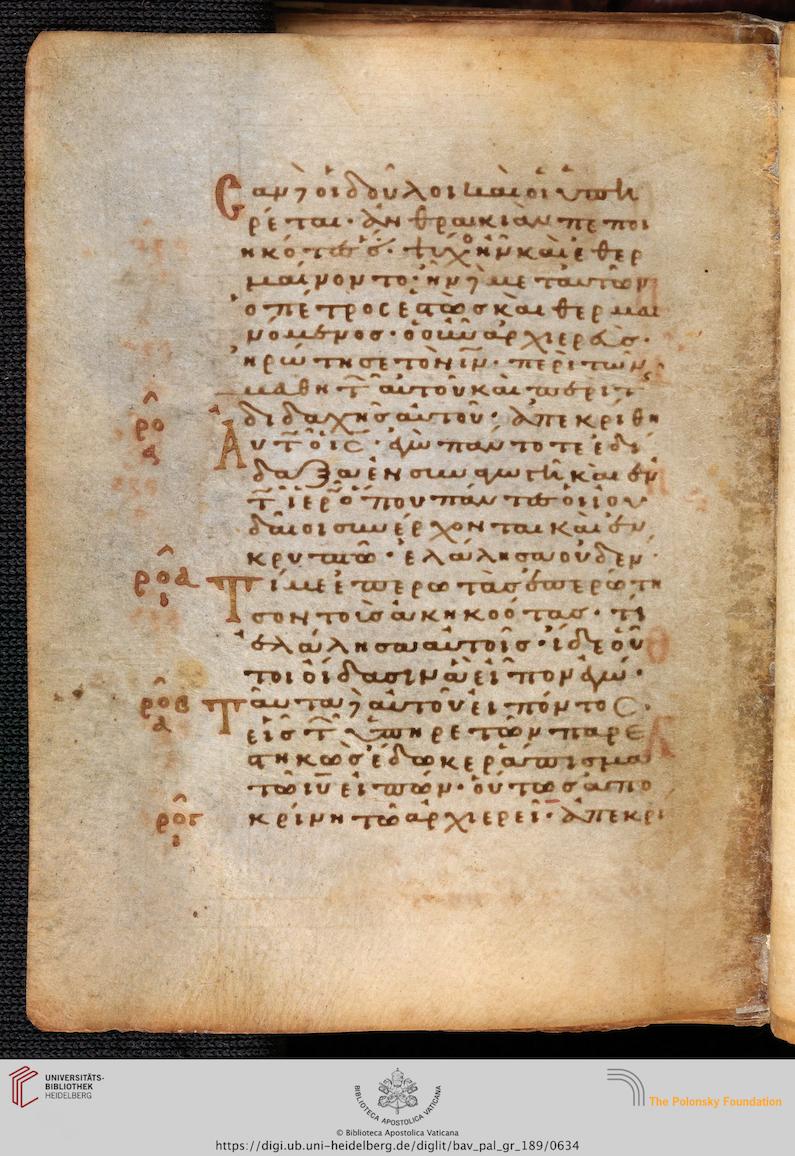 Cαν δὲ οἱ δοῦλοι καὶ οἱ ὑπη
ρέται· ἀνθρακιὰν πεποι
ηκότες· ὅτι ψύχος ἦν καὶ ἐθερ
μαίνοντο· ἦν δὲ μετ' αὐτῶν
ὁ πέτρος ἑστὼς καὶ θερμαι
νόμενος· ὁ οὖν ἀρχιερεὺς·
ἠρώτησε τὸν ιν̅· περὶ τῶν
μαθητ̅ αὐτοῦ καὶ περὶ τ̅
διδαχῆς αὐτοῦ· ἀπεκρίθη
ρο
δ
Αὐτ̅ ὁ ις̅· ἐγὼ πάντοτε ἐδί
δαξα ἐν συναγωγῆ καὶ ἐν
τ̅ ἱερῶ ὅπου πάντες οἱ ἰου
δαῖοι συνέρχονται καὶ ἐν
κρυπτῶ· ἐλάλησα οὐδέν·
ροα
ι
Τί με ἐπερωτᾶς ἐπερώτη
σον τοὺς ἀκηκοότας· τί
ἐλάλησα αὐτοῖς· ἴδε οὗ
τοι οἴδασιν ἃ εἶπον ἐγώ·
ροβ
α
Ταῦτα δὲ αὐτοῦ εἰπόντος·
εἷς τ̅ ὑπηρετῶν παρε
στηκὼς ἔδωκε ῥάπισμα
τῶ ιυ̅ εἰπών· οὕτως ἀπο
ρογ
ι
κρίνη τῶ ἀρχιερεῖ· ἀπεκρί
UNIVERSITÄTS-
BIBLIOTHEK
HEIDELBERG
BIBLIOTHECA APOSTOLICA VATICANA
The Polonsky Foundation
© Biblioteca Apostolica Vaticana
https://digi.ub.uni-heidelberg.de/diglit/bav_pal_gr_189/0634